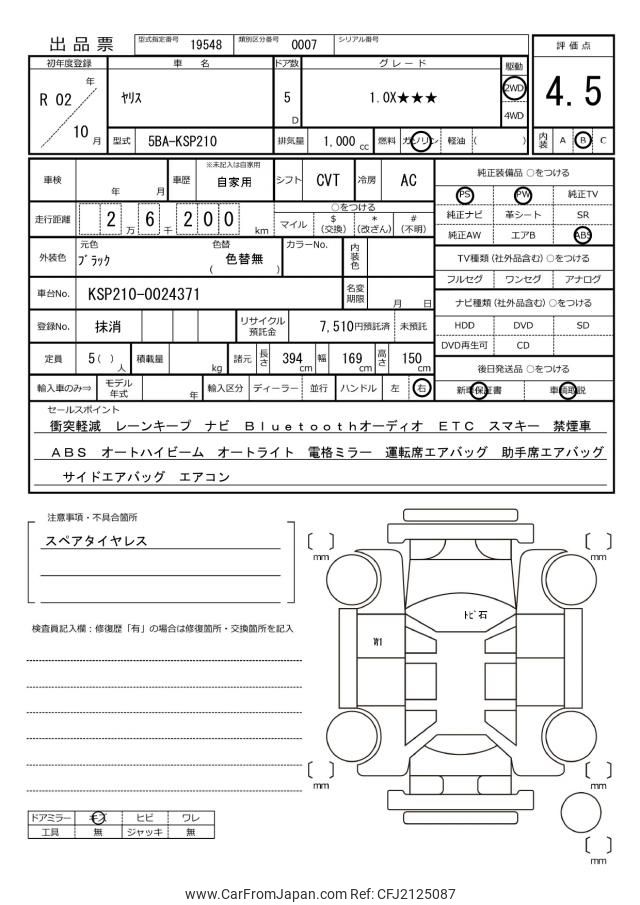 出品票 型式指定番号 19548 類別区分番号 0007 シリアル番号
評価点
4.5
内装 A B C
初年度登録 車名 ドア数 グレード 駆動
R 02 年 10 月
ヤリス
5 D
1.0X★★★
2WD
4WD
型式 5BA-KSP210 排気量 1,000 cc 燃料 ガソリン 軽油 ( )
車検 年 月 車歴 ※未記入は自家用 自家用 シフト CVT 冷房 AC
走行距離 2 6 万 千 2 0 0 km
○をつける
マイル $(交換) *(改ざん) #(不明)
外装色 元色 ブラック 色替 ( 色替無 ) カラーNo. 内装色
車台No. KSP210-0024371 名変期限 月 日
登録No. 抹消 リサイクル預託金 7,510円預託済 未預託
定員 5 ( ) 人 積載量 kg 諸元 長さ 394 cm 幅 169 cm 高さ 150 cm
輸入車のみ⇒ モデル年式 年 輸入区分 ディーラー 並行 ハンドル 左 右
純正装備品 ○をつける
PS PW 純正TV
純正ナビ 革シート SR
純正AW エアB ABS
TV種類(社外品含む) ○をつける
フルセグ ワンセグ アナログ
ナビ種類(社外品含む) ○をつける
HDD DVD SD
DVD再生可 CD
後日発送品 ○をつける
新車保証書 車輌取説
セールスポイント
衝突軽減 レーンキープ ナビ Bluetoothオーディオ ETC スマキー 禁煙車
ABS オートハイビーム オートライト 電格ミラー 運転席エアバッグ 助手席エアバッグ
サイドエアバッグ エアコン
注意事項・不具合箇所
スペアタイヤレス
検査員記入欄:修復歴「有」の場合は修復箇所・交換箇所を記入
mm
mm
トビ石
W1
mm
mm
mm
ドアミラー キズ ヒビ ワレ
工具 無 ジャッキ 無
www.CarFromJapan.com Ref: CFJ2125087